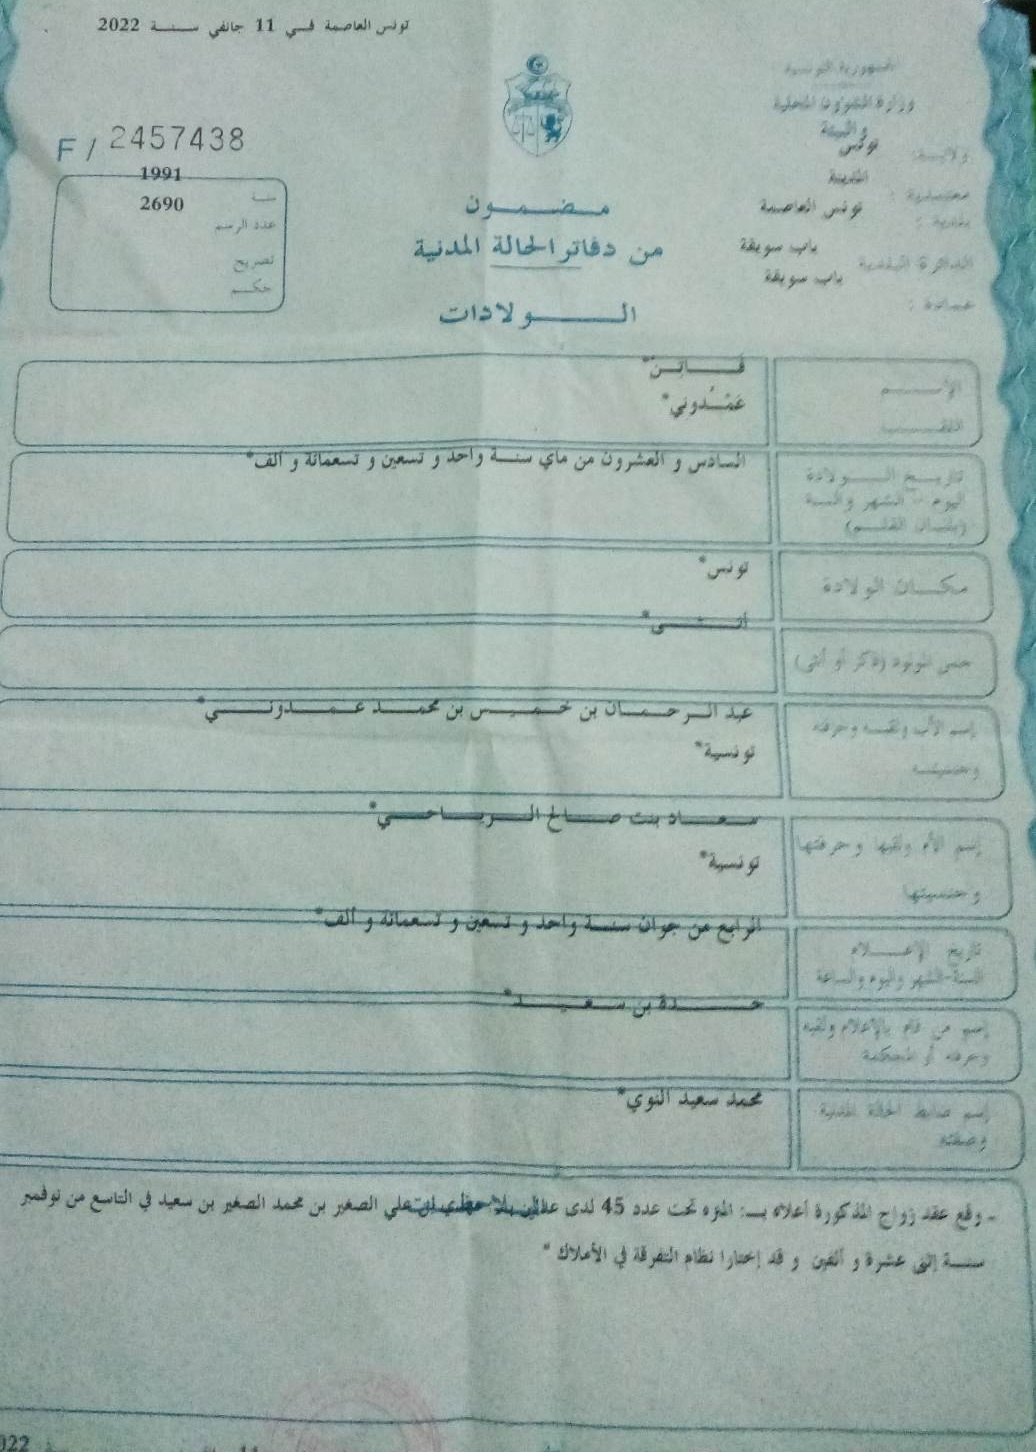 تونس العاصمة في 11 جانفي سنة 2022
الجمهورية التونسية
وزارة الشؤون المحلية
والبيئة
ولاية: تونس
معتمدية : المدينة
بلدية : تونس العاصمة
الدائرة البلدية باب سويقة
عمادة : باب سويقة
F / 2457438
سنة 1991
عدد الرسم 2690
تصريح
حكم
مضمون
من دفاتر الحالة المدنية
الولادات
الإسم فاتن*
اللقب عمدوني*
تاريخ الولادة السادس و العشرون من ماي سنة واحد و تسعين و تسعمائة و ألف*
اليوم - الشهر والسنة
(بلسان القلم)
مكان الولادة تونس*
جنس المولود (ذكر أو أنثى) أنثى*
إسم الأب ولقبه وحرفته عبد الرحمان بن خميس بن محمد عمدوني*
وجنسيته تونسية*
إسم الأم ولقبها وحرفتها سعاد بنت صالح الرياحي*
وجنسيتها تونسية*
تاريخ الإعلام الرابع من جوان سنة واحد و تسعين و تسعمائة و ألف*
السنة-الشهر واليوم والساعة
إسم من قام بالإعلام ولقبه حدة بن سعيد*
وحرفته أو المحكمة
إسم ضابط الحالة المدنية محمد سعيد النوي*
وصفته
- وقع عقد زواج المذكورة أعلاه بـ: المنزه تحت عدد 45 لدى علي الصغير بن محمد الصغير بن سعيد في التاسع من نوفمبر
سنة إثنى عشرة و ألفين و قد إختارا نظام التفرقة في الأملاك *